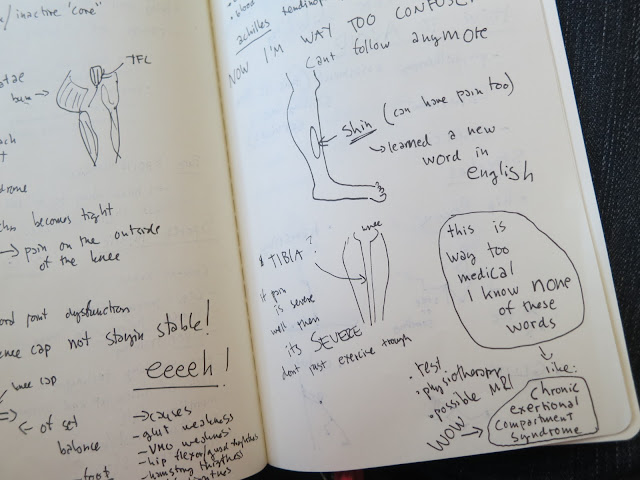 /inactive "core"
TFL
bum
becomes tight
→ pain on the outside
of the knee
joint dysfunction
cap not stayin stable!
eeeeh!
knee cap
of set
balance
foot
→ causes
- glut weakness
- VMO weakness
- hip flexor/quad tightness
- hamstring tightness
achilles
NOW I'M WAY TOO CONFUSED
Cant follow anymore
Shin (can have pain too)
→ learned a new
word in
english
knee
TIBIA?
if pain
is severe
well then
its SEVERE
dont just exercise trough
this is
way too
medical
I know none
of these
words
like:
• rest
• physiotherapy
• possible MRI
WOW →
Chronic
exertional
compartment
Syndrome